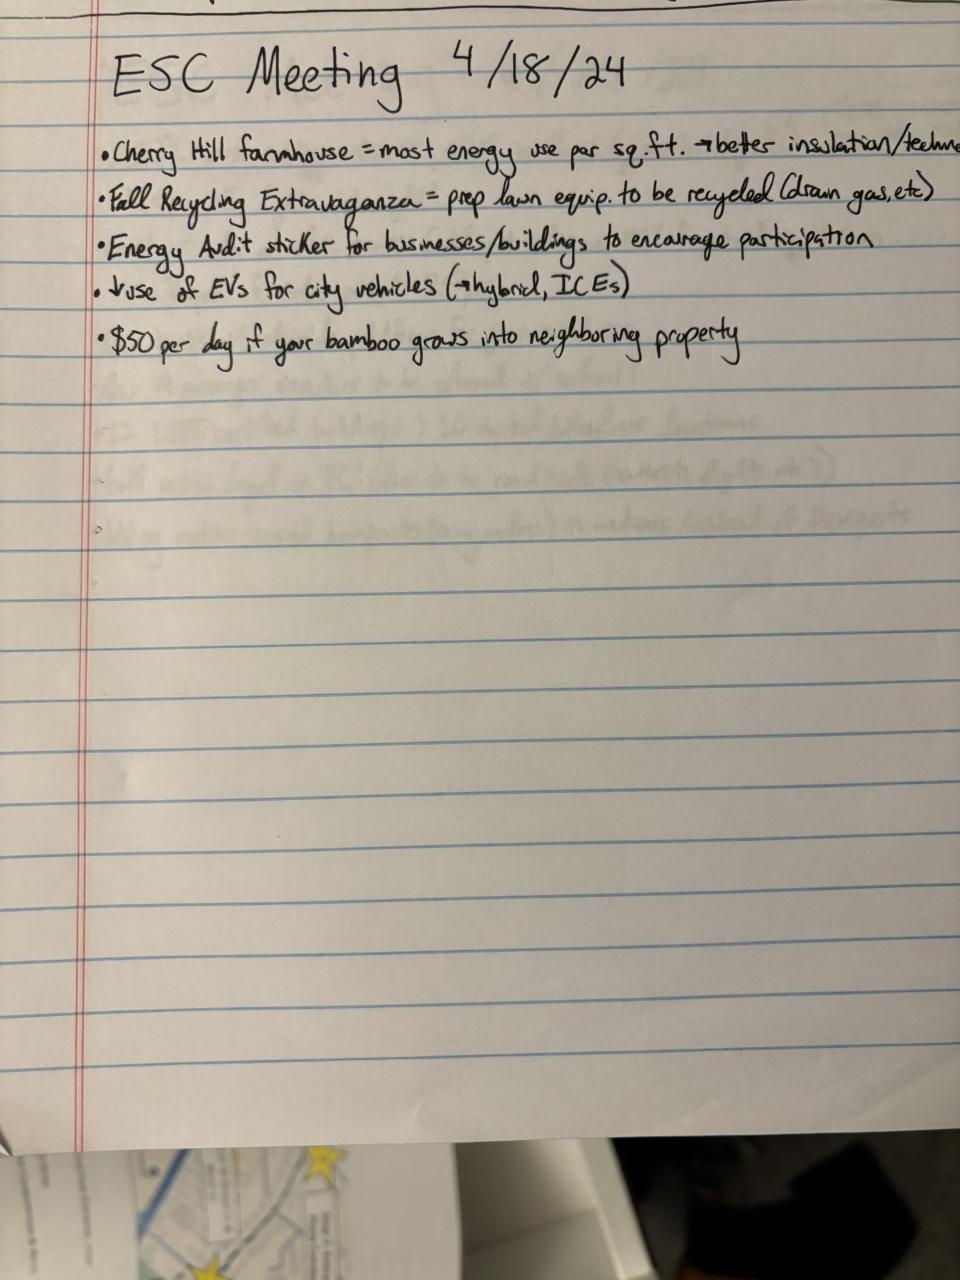 ESC Meeting 4/18/24
• Cherry Hill farmhouse = most energy use per sq.ft. → better insulation/
• Fall Recycling Extravaganza = prep lawn equip. to be recycled (drain gas, etc)
• Energy Audit sticker for businesses/buildings to encourage participation
• ↓ use of EVs for city vehicles (→ hybrid, ICEs)
• $50 per day if your bamboo grows into neighboring property